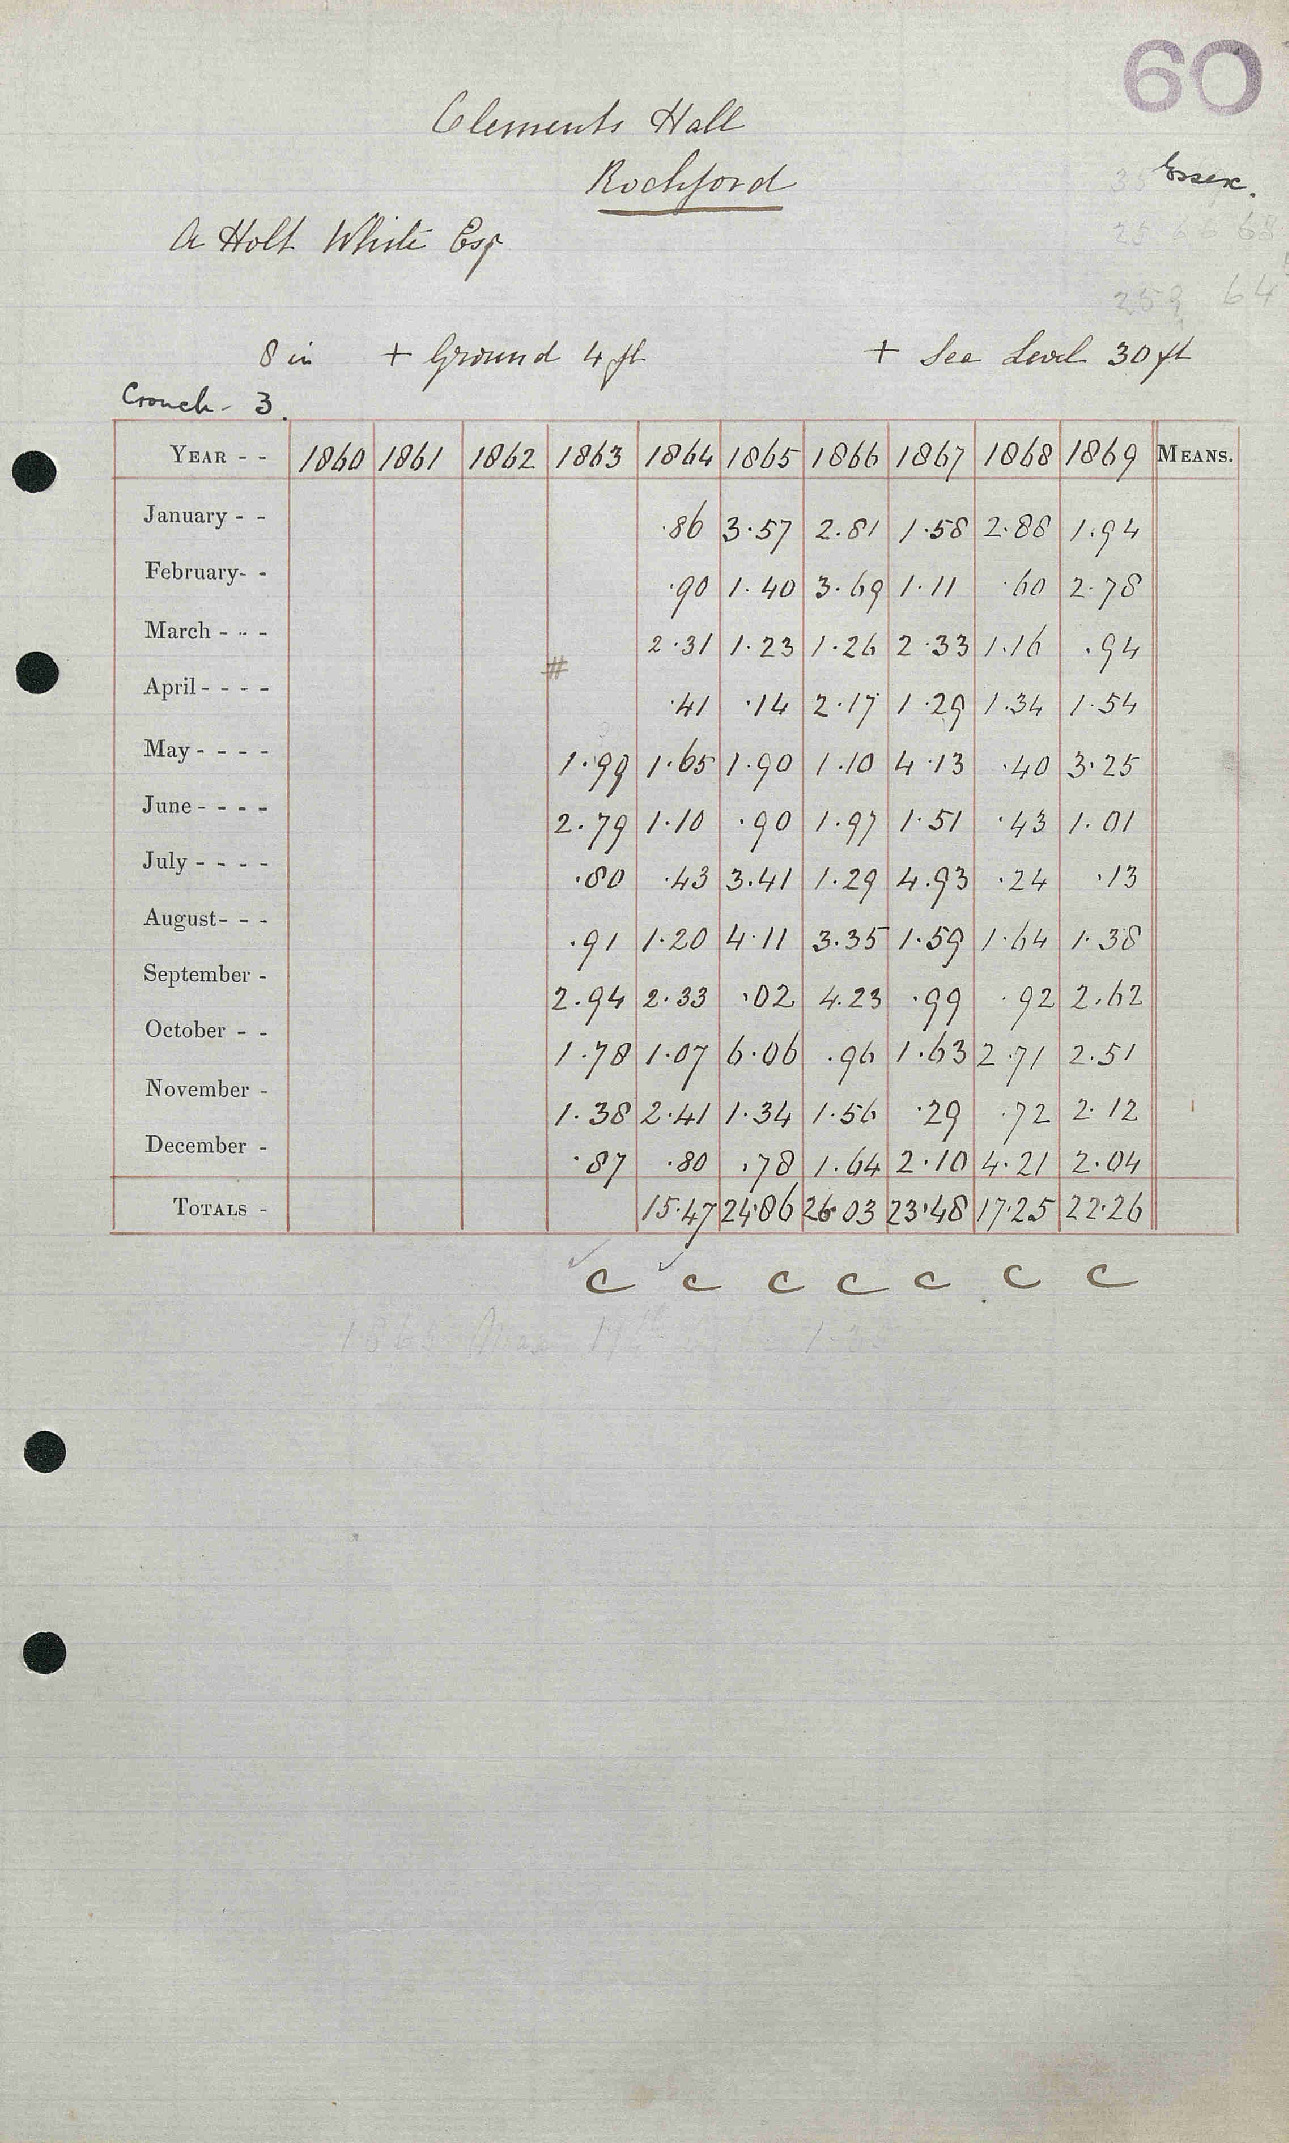 60
Clements Hall
Essex.
Rochford
A Holt White Esq
64
8 in + Ground 4 ft + Sea Level 30 ft
Crouch - 3.
YEAR - - 1860 1861 1862 1863 1864 1865 1866 1867 1868 1869 MEANS.
January - - ·86 3·57 2·81 1·58 2·88 1·94
February- - ·90 1·40 3·69 1·11 ·60 2·78
March - - - 2·31 1·23 1·26 2·33 1·16 ·94
#
April - - - - ·41 ·14 2·17 1·29 1·34 1·54
May - - - - 1·99 1·65 1·90 1·10 4·13 ·40 3·25
June - - - - 2·79 1·10 ·90 1·97 1·51 ·43 1·01
July - - - - ·80 ·43 3·41 1·29 4·93 ·24 ·13
August- - - ·91 1·20 4·11 3·35 1·59 1·64 1·38
September - 2·94 2·33 ·02 4·23 ·99 ·92 2·62
October - - 1·78 1·07 6·06 ·96 1·63 2·71 2·51
November - 1·38 2·41 1·34 1·56 ·29 ·72 2·12
December - ·87 ·80 ·78 1·64 2·10 4·21 2·04
TOTALS - 15·47 24·86 26·03 23·48 17·25 22·26
c c c c c c c